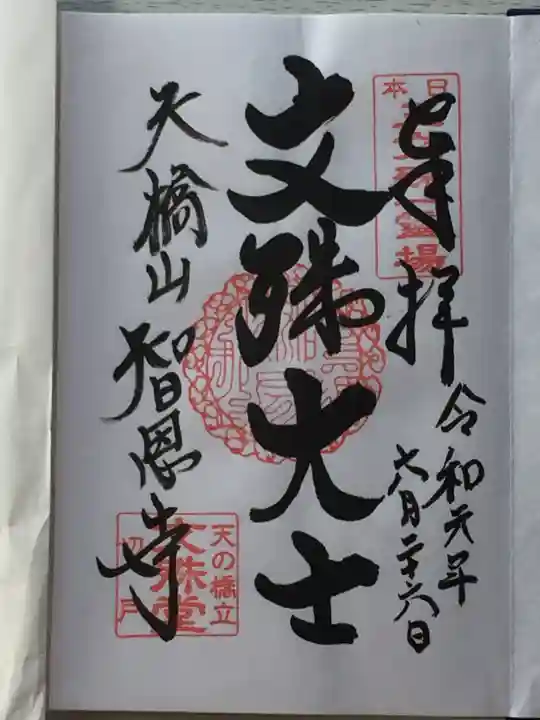 奉拝
日本三文殊霊場
令和元年
六月二十六日
文殊大士
天橋山智恩寺
天の橋立
文殊堂
切戸